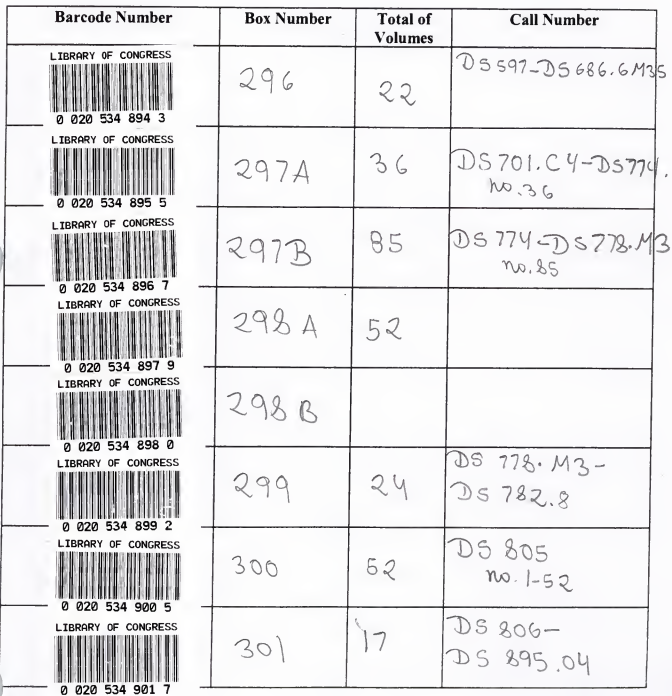 Barcode Number Box Number Total of Volumes Call Number
LIBRARY OF CONGRESS
0 020 534 894 3
296
22
DS597-DS686.6M35
LIBRARY OF CONGRESS
0 020 534 895 5
297A
36
DS701.C4-DS774.
no.36
LIBRARY OF CONGRESS
0 020 534 896 7
297B
85
DS774-DS778.M3
no.85
LIBRARY OF CONGRESS
0 020 534 897 9
298A
52
LIBRARY OF CONGRESS
0 020 534 898 0
298B
LIBRARY OF CONGRESS
0 020 534 899 2
299
24
DS 778.M3-
DS 782.8
LIBRARY OF CONGRESS
0 020 534 900 5
300
52
DS 805
no. 1-52
LIBRARY OF CONGRESS
0 020 534 901 7
301
17
DS 806-
DS 895.04